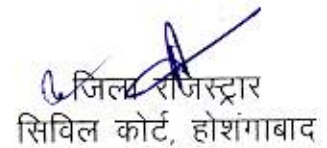 जिला रजिस्ट्रार
सिविल कोर्ट, होशंगाबाद